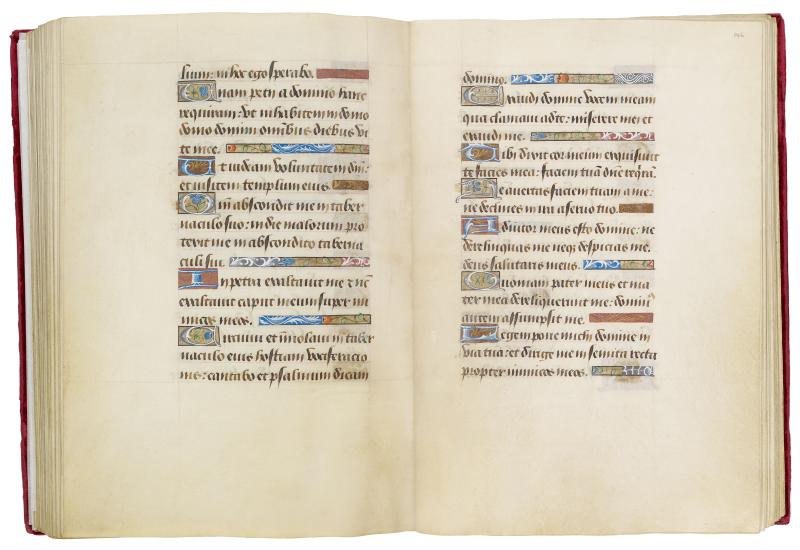 lium: in hoc ego sperabo.
Unam petij a domino hanc
requiram: ut inhabitem in domo
domo domini omnibus diebus vi
te mee.
Ut videam voluntatem dñi:
et visitem templum eius.
Qm̄ abscondit me in taber
naculo suo: in die malorum pro
texit me in abscondito taberna
culi sui.
In petra exaltavit me ⁊ nc̄
exaltavit caput meum super ini
micos meos.
Circuivi et im̄olavi in taber
naculo eius hostiam vociferacio
nis: cantabo et psalmum dicam
domino.
Exaudi domine vocem meam
qua clamavi ad te: miserere mei et
exaudi me.
Tibi dixit cor meum exquisivit
te facies mea: faciem tuam dñe reqr̄ā.
Ne avertas faciem tuam a me:
ne declines in ira a servo tuo.
Adiutor meus esto domine: ne
derelinquas me neqȝ despicias me.
deus salutaris meus.
Quoniam pater meus et ma
ter mea dereliquerunt me: domin̄
autem assumpsit me.
Legem pone michi domine in
via tua: et dirige me in semita recta
propter inimicos meos.